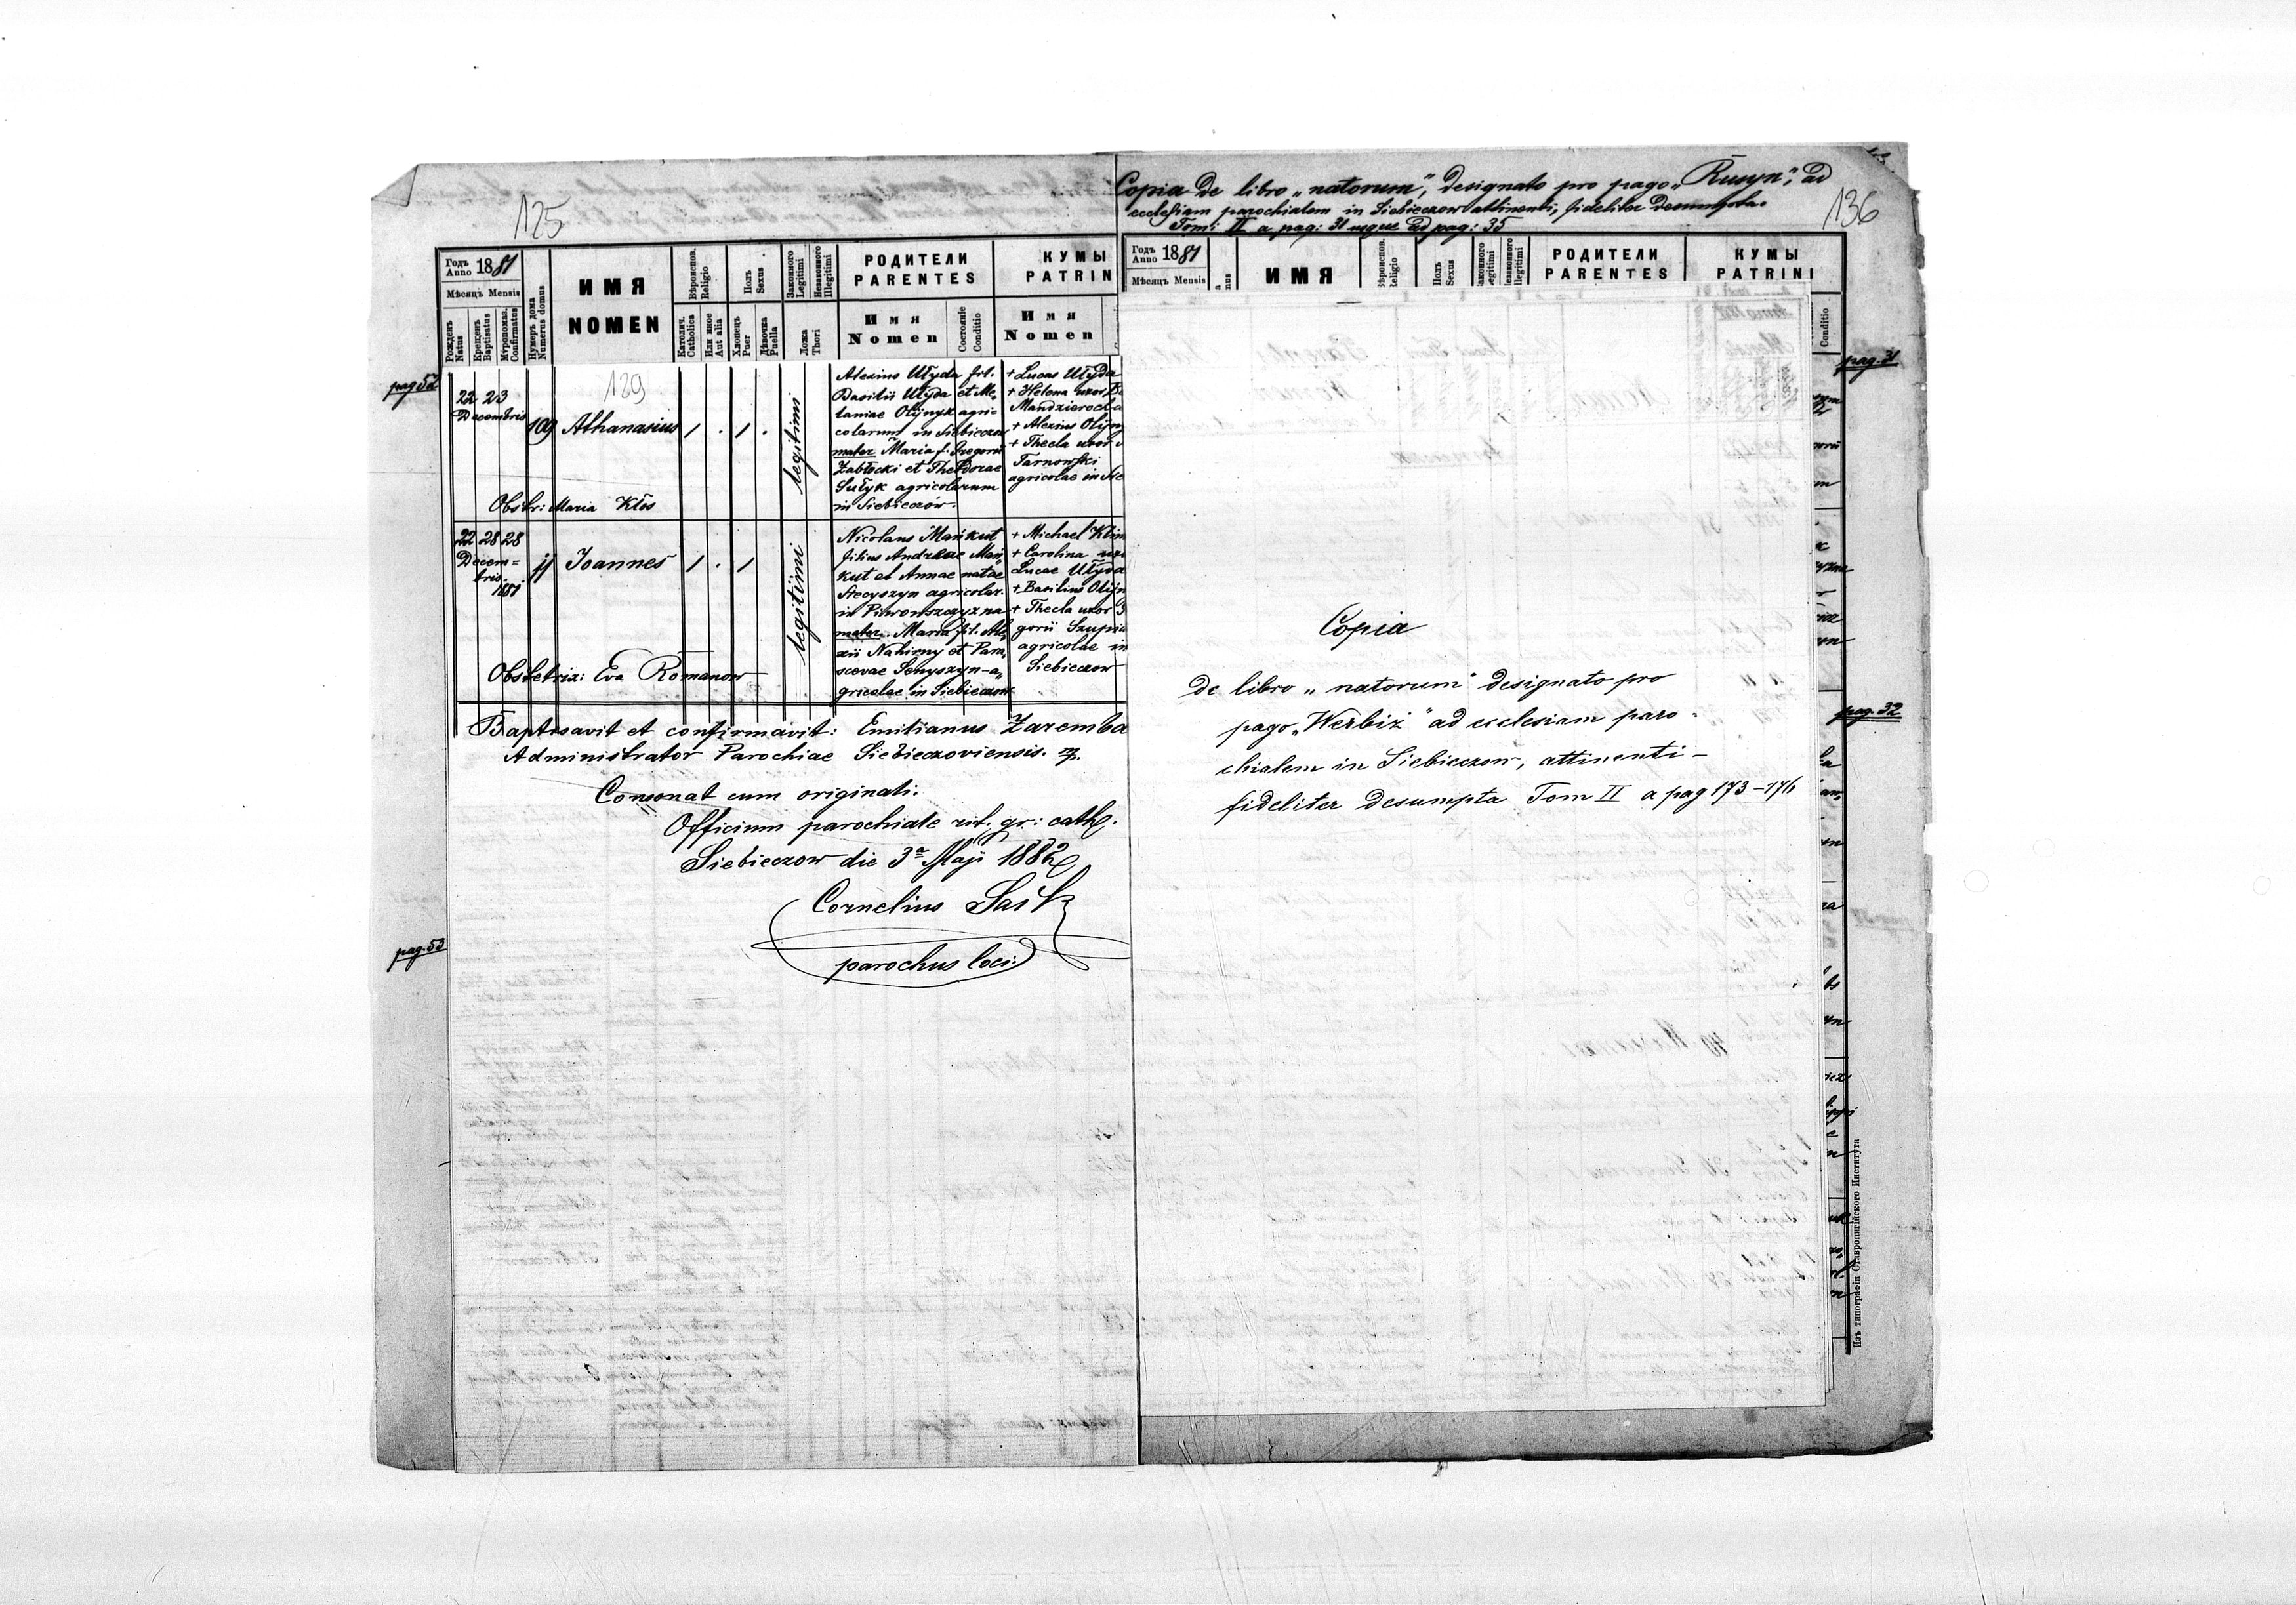 125
Годъ Anno 1881
Мѣсяцъ Mensis
Рожденъ Natus
Крещенъ Baptisatus
Мѵропомаз. Confirmatus
Нумеръ дома Numerus domus
ИМЯ
NOMEN
Вѣроиспов. Religio
Католич. Catholica
Или иное Aut alia
Полъ Sexus
Хлопецъ Puer
Дѣвочка Puella
Законного Legitimi
Незаконного Illegitimi
Ложа Thori
РОДИТЕЛИ
PARENTES
Имя
Nomen
Состояніе Conditio
КУМЫ
PATRIN
Имя
Nomen
pag 52
129
22 23
Decembris
109 Athanasius 1 . 1 .
legitimi
Alexius Ułyda fil.
Basilii Ułyda et Me,
laniae Olijnyk agri=
colarum in Siebieczow
mater Maria f. Gregorii
Zabłocki et Theodorae
Sułyk agricolarum
in Siebieczów.
+ Lucas Ułyda
+ Helena uxor B
Mandzieroch a
+ Alexius Olijny
+ Thecla uxor
Tarnowski
agricolae in Sie
Obstr: Maria Kłos
22 28 28
Decem=
bris.
1881
11 Joannes 1 . 1
legitimi
Nicolaus Mańkut
filius Andreae Mań,
kut et Annae natae
Stecyszyn agricolar.
in Piwowszczyzna
mater Maria fil. Ale,
xii Nahirny et Para,
scevae Senyszyn - a,
gricolae in Siebieczow.
+ Michael Klim
+ Carolina uxo
Lucae Ułyda
+ Basilius Olijn
+ Thecla uxor G
gorii Szupia
agricolae in
Siebieczow
Obstetrix: Eva Romanow
Baptisavit et confirmavit: Emilianus Zaremba
Administrator Parochiae Siebieczoviensis. mp.
Consonat cum originali.
Officium parochiale rit. gr: cath.
Siebieczow die 3ª Maji 1882
Cornelius
parochus loci.
pag. 53
Copia de libro „natorum", designato pro pago „Rusyn", ad
ecclesiam parochialem in Siebieczow attinenti, fideliter desumpta.
Tom: II a pag: 31 usque ad pag: 35
136
Годъ Anno 1881
Мѣсяцъ Mensis
ИМЯ
Вѣроиспов. Religio
Полъ Sexus
РОДИТЕЛИ
PARENTES
КУМЫ
PATRINI
Conditio
pag. 31
Copia
de libro „natorum" designato pro
pago „Werbiż" ad ecclesiam paro=
chialem in Siebieczow, attinenti -
fideliter desumpta Tom II a pag 173 - 176
pag. 32
Изъ типографіи Ставропигійского Института